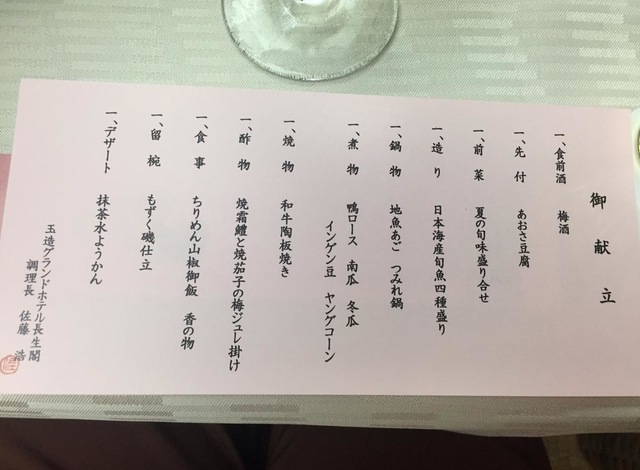 御献立
一、食前酒 梅酒
一、先付 あおさ豆腐
一、前菜 夏の旬味盛り合せ
一、造り 日本海産旬魚四種盛り
一、鍋物 地魚あご つみれ鍋
一、煮物 鴨ロース 南瓜 冬瓜
インゲン豆 ヤングコーン
一、焼物 和牛陶板焼き
一、酢物 焼霜鱧と焼茄子の梅ジュレ掛け
一、食事 ちりめん山椒御飯 香の物
一、留椀 もずく磯仕立
一、デザート 抹茶水ようかん
玉造グランドホテル長生閣
調理長 佐藤 浩